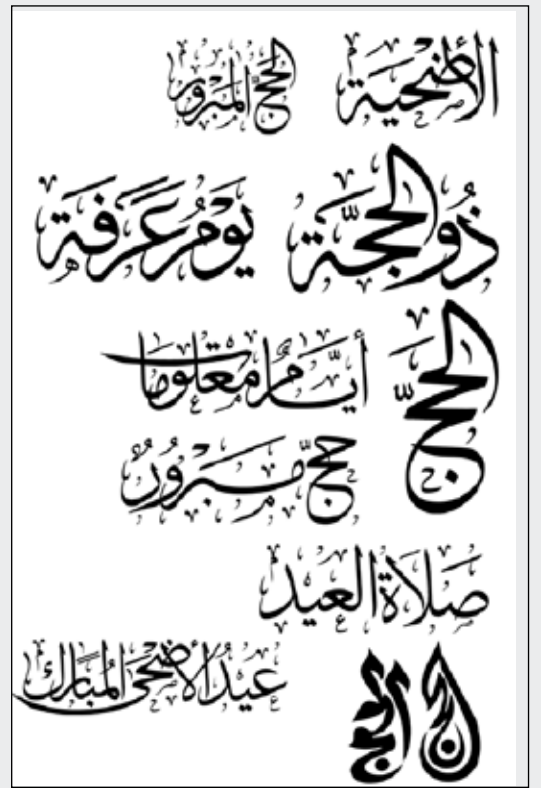 الأضحية
الحج المبرور
ذُو الحجَّة
يَوْمُ عَرَفَة
الحجّ
أيَّام معلومات
حجّ مبرور
صلاة العيد
عيد الأضحى المبارك